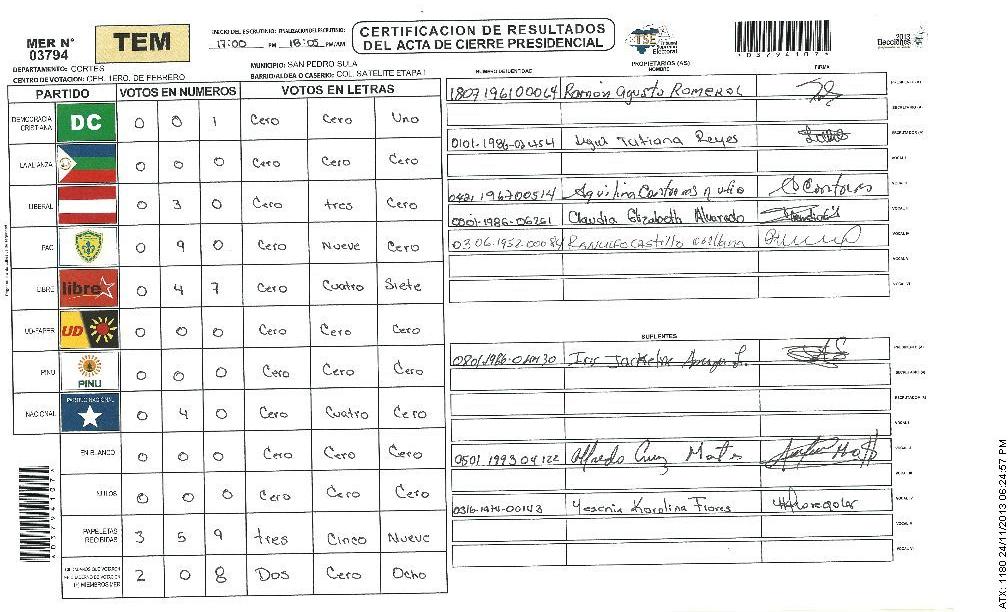 MER N°
03794
TEM
INICIO DEL ESCRUTINIO: FINALIZACION DEL ESCRUTINIO:
17:00 PM 18:05 PM/AM
CERTIFICACION DE RESULTADOS
DEL ACTA DE CIERRE PRESIDENCIAL
TSE
Tribunal
Supremo
Electoral
A03794107A
2013
Elecciones
DEPARTAMENTO: CORTES
MUNICIPIO: SAN PEDRO SULA
CENTRO DE VOTACION: CER. 1ERO. DE FEBRERO
BARRIO/ALDEA O CASERIO: COL. SATELITE ETAPA I
PARTIDO VOTOS EN NUMEROS VOTOS EN LETRAS
DEMOCRACIA CRISTIANA DC 0 0 1 Cero Cero Uno
LA ALIANZA 0 0 0 Cero Cero Cero
LIBERAL 0 3 0 Cero tres Cero
PAC 0 9 0 Cero Nueve Cero
LIBRE libre 0 4 7 Cero Cuatro Siete
UD-FAPER UD 0 0 0 Cero Cero Cero
PINU PINU 0 0 0 Cero Cero Cero
NACIONAL PARTIDO NACIONAL 0 4 0 Cero Cuatro Cero
EN BLANCO 0 0 0 Cero Cero Cero
NULOS 0 0 0 Cero Cero Cero
PAPELETAS RECIBIDAS 3 5 9 tres Cinco Nueve
CIUDADANOS QUE VOTARON 2 0 8 Dos Cero Ocho
A03794107A
PROPIETARIOS (AS)
NUMERO DE IDENTIDAD NOMBRE FIRMA
1807196100064 Ramón Agusto ROMERO
0101-1986-03454 Tatiana Reyes
196700514 Aquilina Contreras
0001-1986-06261 Claudia Elizabeth Alvarado
0306-1952-00084 RANULFO CASTILLO
SUPLENTES
Iris Jackelin
0501 1993 04122 Alfredo Cruz Mateo
0316-1974-00143 Yesenia Karolina Flores
ATX: 1180 24/11/2013 06:24:57 PM